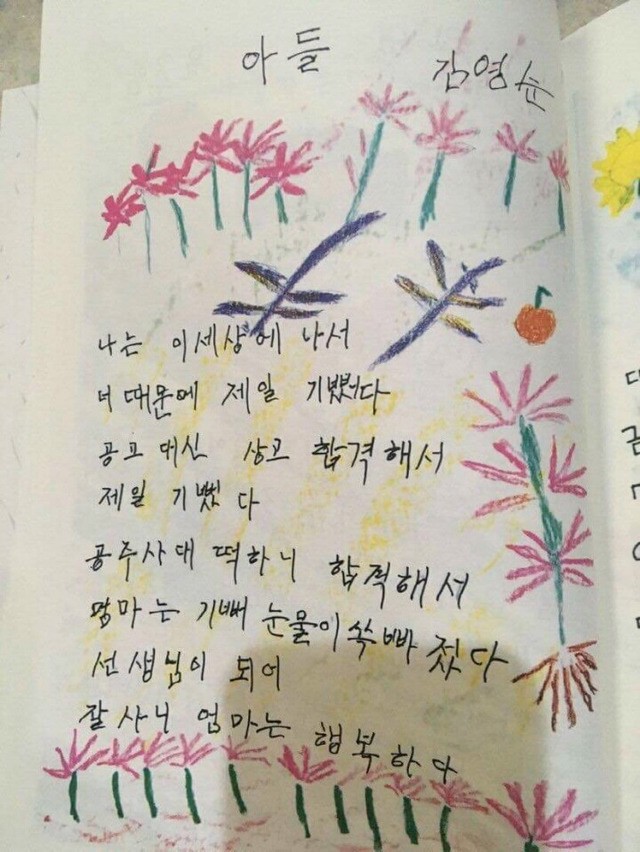 아들 김영순
나는 이세상에 나서
너 때문에 제일 기뻤다
공고 대신 상고 합격해서
제일 기뻤다
공주사대 떡하니 합격해서
맘마는 기뻐 눈물이 쏙 빠졌다
선생님이 되어
잘 사니 엄마는 행복하다